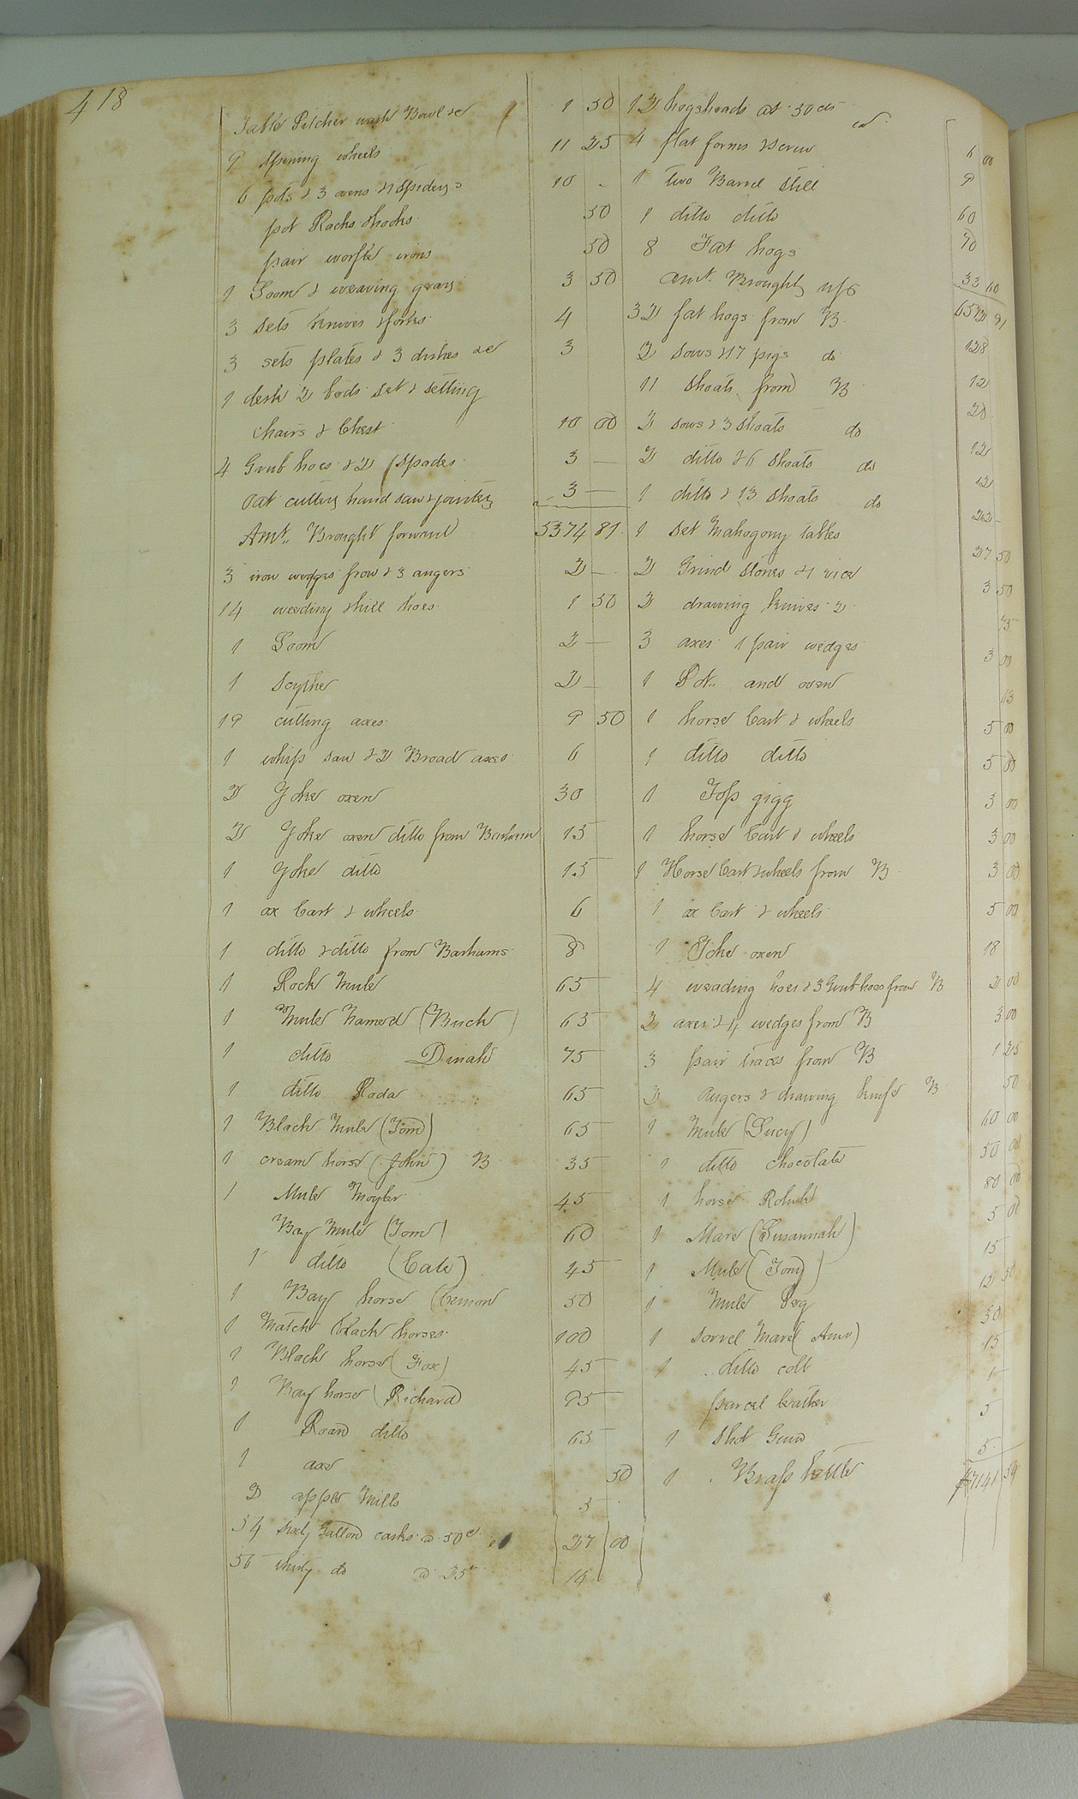 418
Table Pitcher wash Bowl &c 1 50
9 Spining wheels 11 25
6 pots & 3 ovens & 1 Spider 10 -
pot Racks & hooks 50
pair worfle irons 50
1 Loom & weaving gears 3 50
3 Sets knives & forks 4
3 sets plates & 3 dishes &c 3
1 desk 2 beds Set & Setting
Chairs & Chest 10 00
4 Grub hoes & 2 Spades 3 —
Oat cutting hand saw & jointer 3 —
Amt. Brought forward 5374 81
3 iron wedges frow & 3 augers 2 —
14 weeding & hill hoes 1 50
1 Loom 2 —
1 Scythe 2 —
19 cutting axes 9 50
1 whip saw & 2 Broad axes 6
2 Yoke oxen 30
2 Yoke oxen ditto from Barham 15
1 Yoke ditto 15
1 ox Cart & wheels 6
1 ditto & ditto from Barhams 8
1 Rock Mule 65
1 Mule Named (Buck) 65
1 ditto Dinah 75
1 ditto Roda 65
1 Black Mule (Tom) 65
1 cream horse (John) B 35
1 Mule 45
Bay Mule (Tom) 60
1 ditto (Cate) 45
1 Bay horse 50
1 Match black horses 100
1 Black horse (Fox) 45
1 Bay horse (Richard) 95
1 Roan ditto 65
1 axe 50
2 apple Mills 3
54 Sixty Gallon casks @ 50c 27 00
56 thirty do @ 35c
12 hogsheads at 50 cts 6 00
4 flat forms & screw 9
1 two Barrel Still 60
1 ditto ditto 70
8 Fat hogs 33 60
Amt. Brought up
32 fat hogs from B 128
2 Sows & 17 pigs do 12
11 Shoats from B 20
2 Sows & 3 Shoats do 12
2 ditto & 6 Shoats do 12
1 ditto & 13 Shoats do 22 —
1 Set Mahogony tables 27 50
2 Grind Stones & 1 vice 3 50
2 drawing knives 75
3 axes 1 pair wedges 3 00
1 Pot and oven
1 horse Cart & wheels 5 00
1 ditto ditto 5 00
1 Top gigg 3 00
1 horse Cart & wheels 3 00
1 Horse Cart & wheels from B 3 00
1 ox Cart & wheels 5 00
1 Yoke oxen 18
4 weading hoes & 3 Grub hoes from B 2 00
2 axes & 4 wedges from B 3 00
3 pair traces from B 1 25
2 augers & drawing knife B 50
1 Mule (Lucy) 60 00
1 ditto chocolate 50 00
1 horse 80 00
1 Mare (Susannah) 5 00
1 Mule (Tony) 15
1 Mule Peg
1 Sorrel Mare 30
1 ditto colt 15
parcel leather
1 Shot Gun 5
1 Brass kettle 5
$7141 59